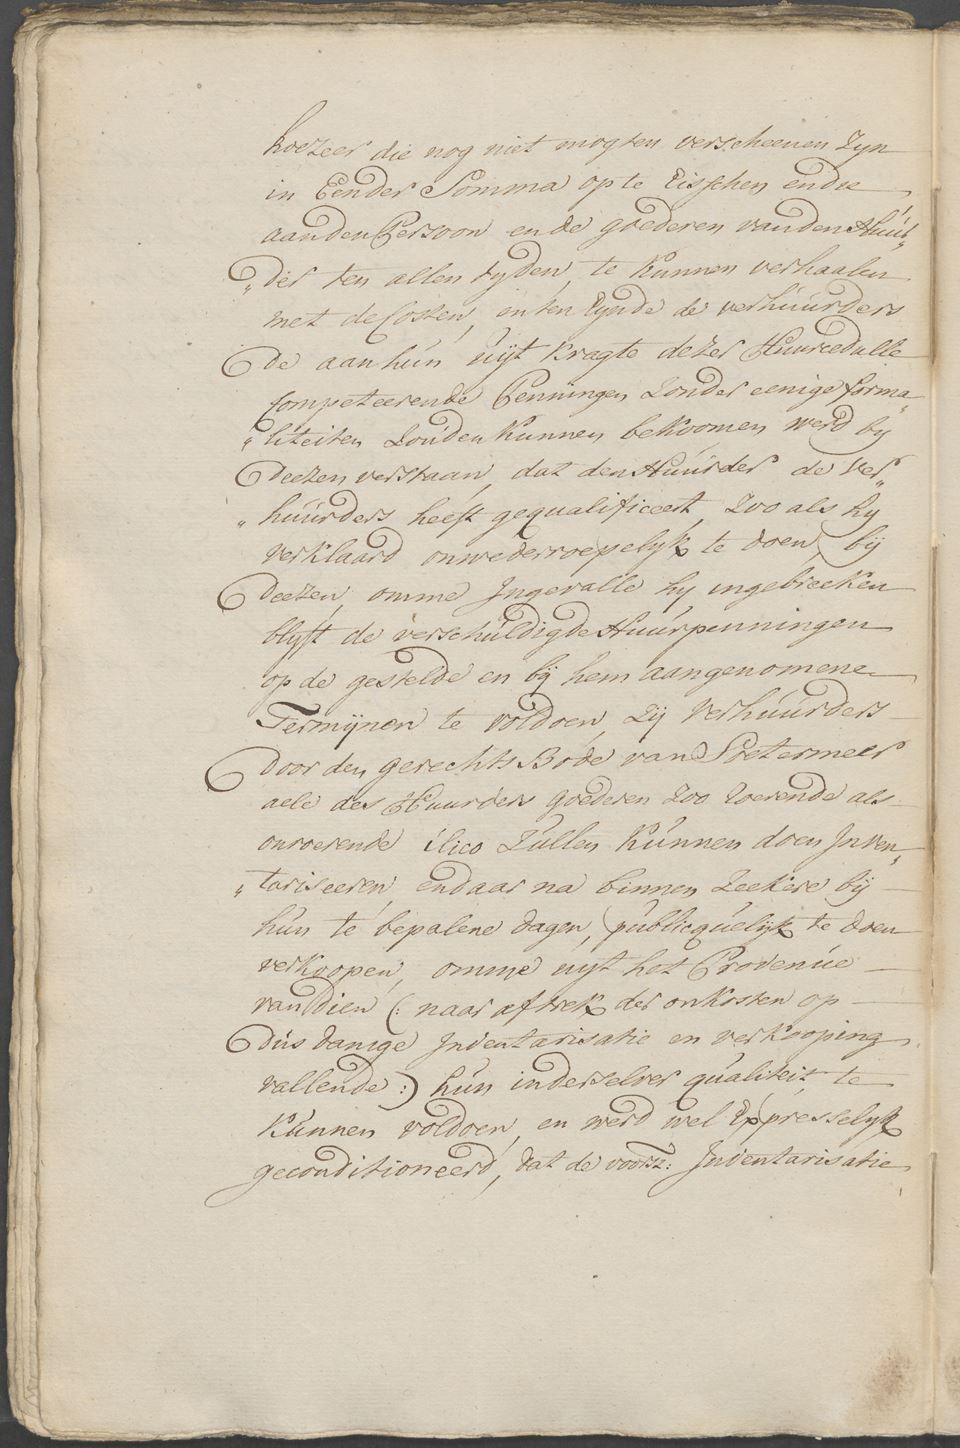 hoezeer die nog niet mogten verscheenen zyn
in Eender Somma op te Eisschen ende
aanden Persoon ende goederen vanden Huur„
„der ten allen tyden, te kunnen verhaalen
met de Costen, en ten Eynde de verhuurders
de aan hun uijt kragte dezer Huurcedulle
Competeerende Penningen zonder eenige forma„
„liteiten zouden kunnen bekoomen werd by
deezen verstaan, dat den Huurder de Ver„
„huurders heeft gequalificeert, zoo als hy
verklaard onwederroepelyk te doen bij
deezen, omme Ingevalle hy ingebreeken
blyft de verschuldigde Huurpenningen
op de gestelde en bij hem aangenomene
Termijnen te voldoen, zij Verhuurders
door den gerechts Bode van Soetermeer
aele des Huurders goederen zoo roerende als
onroerende ilico zullen kunnen doen Inven„
„tariseeren, en daar na binnen zeekere bij
hun te bepalene dagen, publicquelijk te doen
verkoopen, omme uyt het Provenue
van dien (: naar aftrek der onkosten op
dus danige Inventarisatie en verkooping
vallende :) hun inderselver qualiteit, te
kunnen voldoen, en werd wel Expresselyk
geconditioneerd, dat de voorsz: Inventarisatie